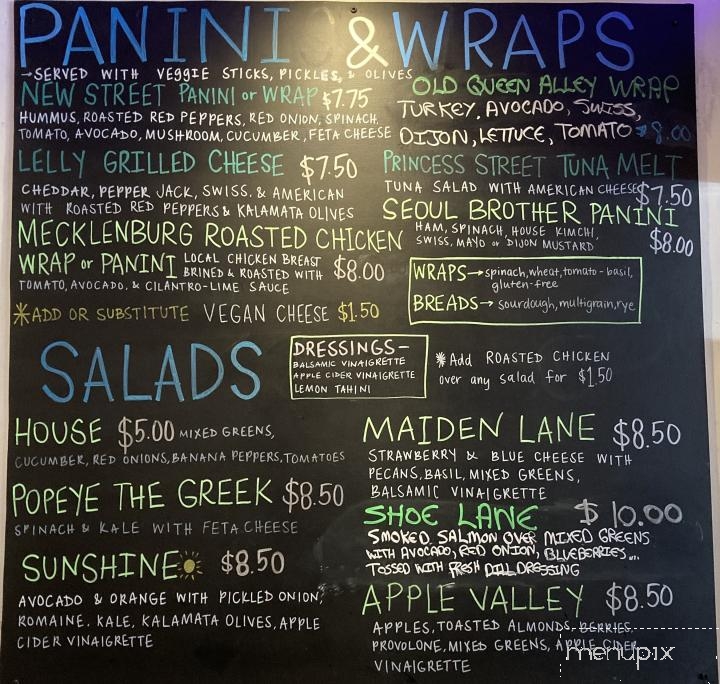 PANINI & WRAPS
→SERVED WITH VEGGIE STICKS, PICKLES, & OLIVES
NEW STREET PANINI or WRAP $7.75
HUMMUS, ROASTED RED PEPPERS, RED ONION, SPINACH,
TOMATO, AVOCADO, MUSHROOM, CUCUMBER, FETA CHEESE
LELLY GRILLED CHEESE $7.50
CHEDDAR, PEPPER JACK, SWISS, & AMERICAN
WITH ROASTED RED PEPPERS & KALAMATA OLIVES
MECKLENBURG ROASTED CHICKEN
WRAP or PANINI LOCAL CHICKEN BREAST
BRINED & ROASTED WITH $8.00
TOMATO, AVOCADO, & CILANTRO-LIME SAUCE
*ADD OR SUBSTITUTE VEGAN CHEESE $1.50
OLD QUEEN ALLEY WRAP
TURKEY, AVOCADO, SWISS,
DIJON, LETTUCE, TOMATO $8.00
PRINCESS STREET TUNA MELT
TUNA SALAD WITH AMERICAN CHEESE $7.50
SEOUL BROTHER PANINI
HAM, SPINACH, HOUSE KIMCHI,
SWISS, MAYO or DIJON MUSTARD $8.00
WRAPS→spinach, wheat, tomato-basil,
gluten-free
BREADS→ sourdough, multigrain, rye
SALADS
DRESSINGS-
BALSAMIC VINAIGRETTE
APPLE CIDER VINAIGRETTE
LEMON TAHINI
*Add ROASTED CHICKEN
over any salad for $1.50
HOUSE $5.00 MIXED GREENS,
CUCUMBER, RED ONIONS, BANANA PEPPERS, TOMATOES
POPEYE THE GREEK $8.50
SPINACH & KALE WITH FETA CHEESE
SUNSHINE $8.50
AVOCADO & ORANGE WITH PICKLED ONION,
ROMAINE, KALE, KALAMATA OLIVES, APPLE
CIDER VINAIGRETTE
MAIDEN LANE $8.50
STRAWBERRY & BLUE CHEESE WITH
PECANS, BASIL, MIXED GREENS,
BALSAMIC VINAIGRETTE
SHOE LANE $10.00
SMOKED SALMON OVER MIXED GREENS
WITH AVOCADO, RED ONION, BLUEBERRIES...
TOSSED WITH FRESH DILL DRESSING
APPLE VALLEY $8.50
APPLES, TOASTED ALMONDS, BERRIES,
PROVOLONE, MIXED GREENS, APPLE CIDER
VINAIGRETTE
menupix